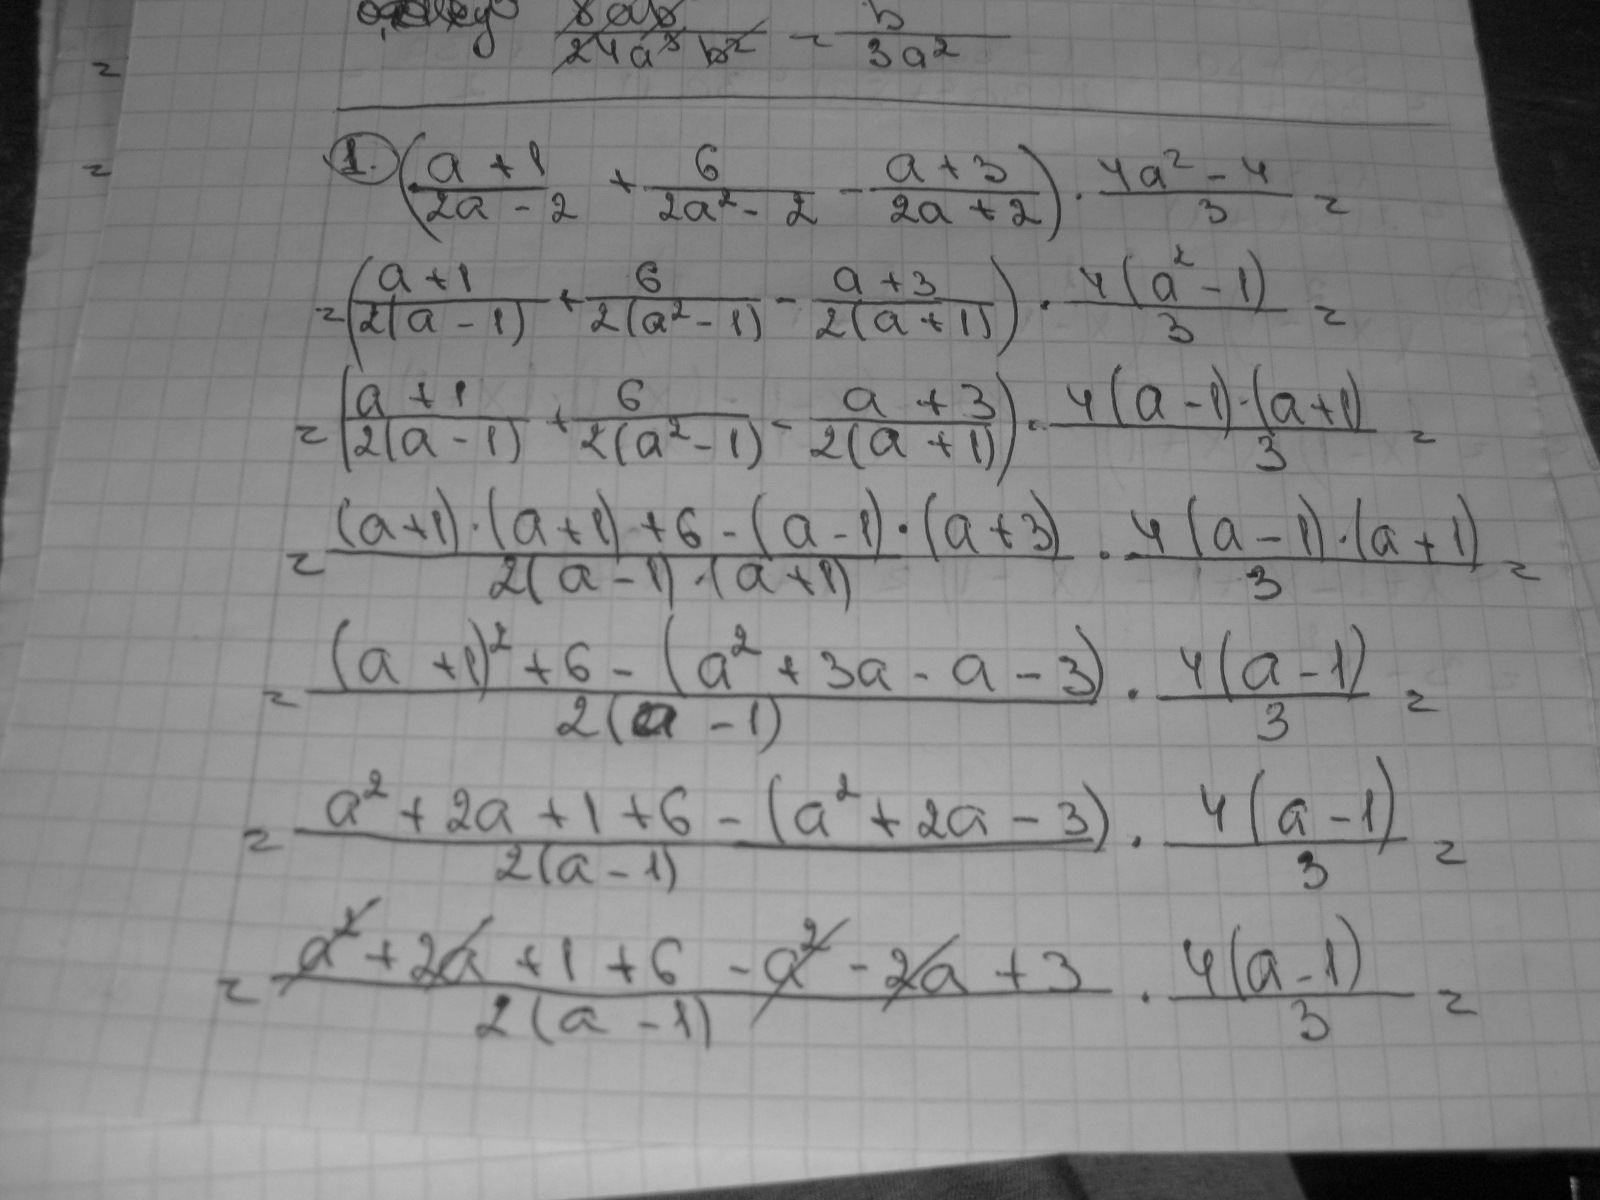 8ab / 24a³b² = b / 3a²
1. ((a + 1)/(2a - 2) + 6/(2a² - 2) - (a + 3)/(2a + 2)) · (4a² - 4)/3 =
= ((a + 1)/(2(a - 1)) + 6/(2(a² - 1)) - (a + 3)/(2(a + 1))) · 4(a² - 1)/3 =
= ((a + 1)/(2(a - 1)) + 6/(2(a² - 1)) - (a + 3)/(2(a + 1))) · 4(a - 1)·(a + 1)/3 =
= ((a + 1)·(a + 1) + 6 - (a - 1)·(a + 3))/(2(a - 1)·(a + 1)) · 4(a - 1)·(a + 1)/3 =
= ((a + 1)² + 6 - (a² + 3a - a - 3))/(2(a - 1)) · 4(a - 1)/3 =
= (a² + 2a + 1 + 6 - (a² + 2a - 3))/(2(a - 1)) · 4(a - 1)/3 =
= (a² + 2a + 1 + 6 - a² - 2a + 3)/(2(a - 1)) · 4(a - 1)/3 =
=
=